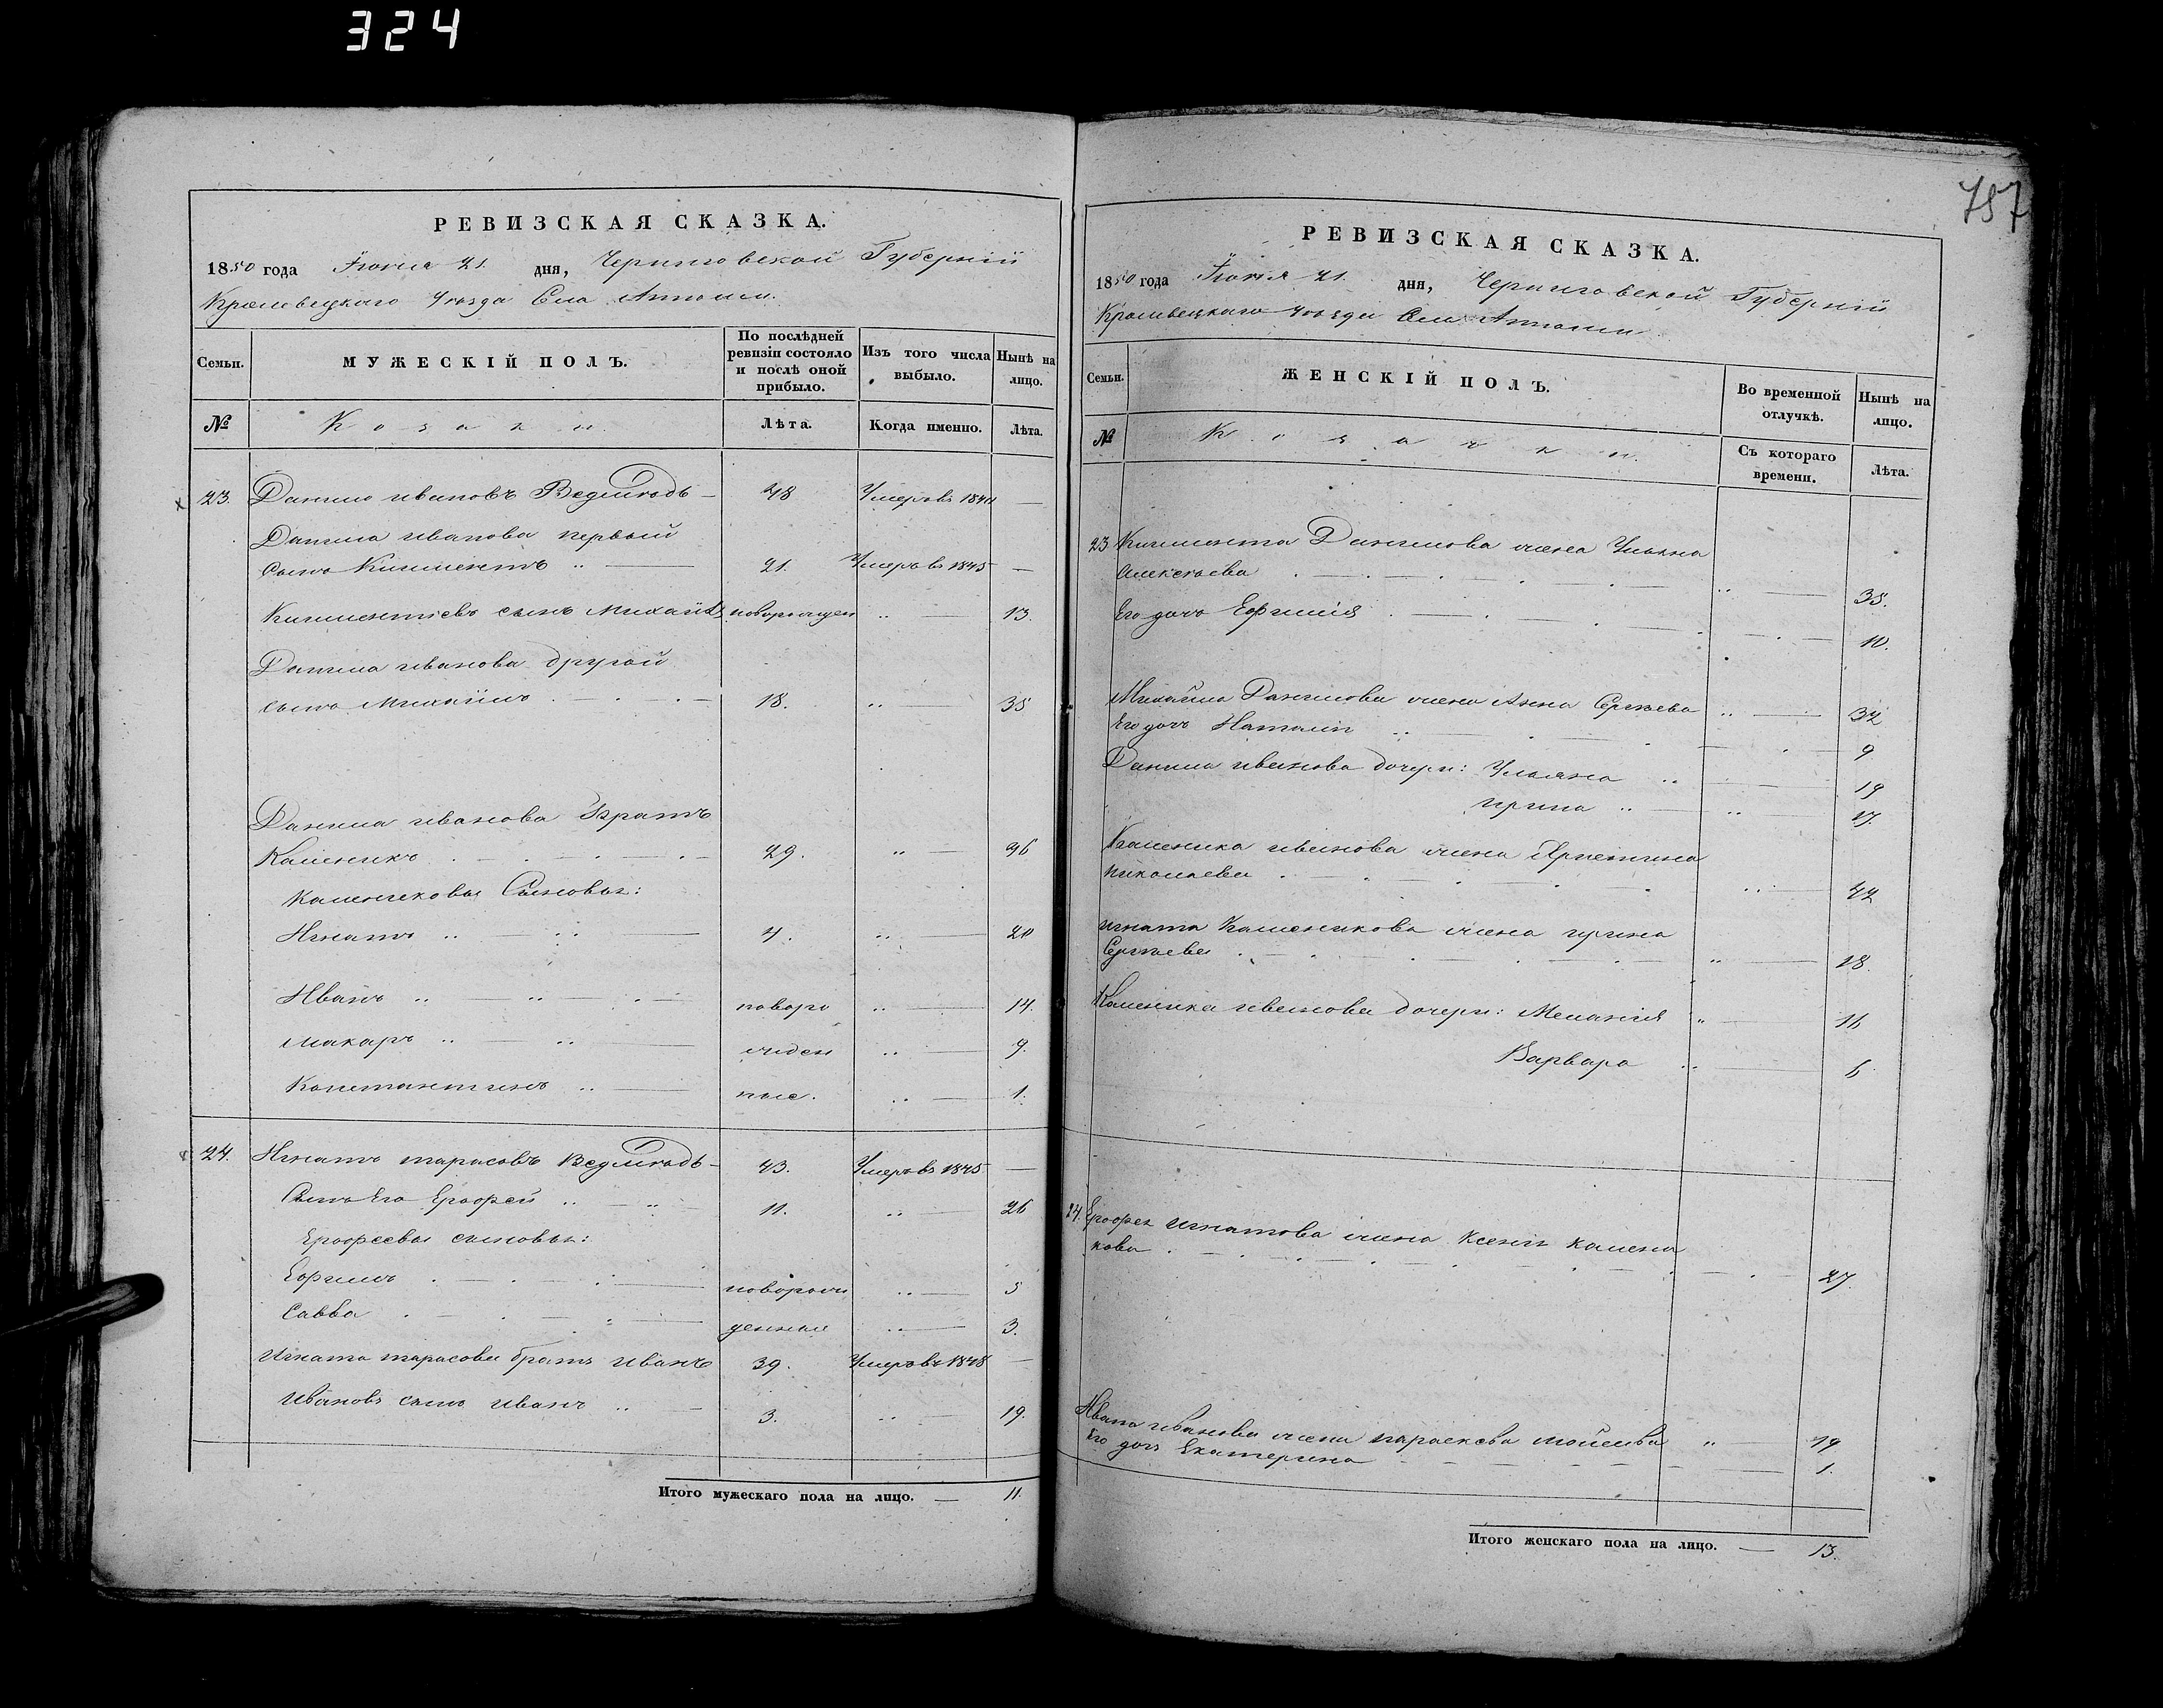 324
787
РЕВИЗСКАЯ СКАЗКА.
1850 года Іюня 21. дня, Черниговской Губерніи
Кролевецкаго Уѣзда Села
МУЖЕСКІЙ ПОЛЪ.
Семьи. По послѣдней ревизіи состояло и послѣ оной прибыло. Изъ того числа выбыло. Нынѣ на лицо.
№ Козаки. Лѣта. Когда именно. Лѣта.
23. Данило Ивановъ Ведмѣдь 48 Умеръ въ
Данила Иванова первый
сынъ Климентъ 21. Умеръ въ 1845 —
Климентіевъ сынъ Михайло новорожден 13.
Данила Иванова другой
сынъ Михайло 18. 35
Данила Иванова братъ
Каленикъ 29. 46
Калениковы Сыновья:
Игнатъ 4. 20
Иванъ новоро 14.
Макаръ жден 9.
Константинъ ные. 1.
24. Игнатъ Тарасовъ Ведмѣдь 43. Умеръ въ 1845 —
Сынъ Его Ерофей 11. 26
Ерофеевы сыновья:
Ефимъ новорож 5
Савва денные 3.
Игната Тарасова братъ Иванъ 39. Умеръ въ 1848 —
Ивановъ сынъ Иванъ 3. 19.
Итого мужескаго пола на лицо. — 11.
РЕВИЗСКАЯ СКАЗКА.
1850 года Іюня 21. дня, Черниговской Губерніи
Кролевецкаго Уѣзда Села
Семьи. ЖЕНСКІЙ ПОЛЪ. Во временной отлучкѣ. Нынѣ на лицо.
№ Козачки. Съ котораго времени. Лѣта.
23 Климента Данилова жена Ульяна
Алексѣева 35.
Его дочь Ефимія 10.
Михайла Данилова жена Анна Сергѣева 32
Его дочь Наталія 9
Данила Иванова дочери: Ульяна 19
Ирина 17.
Каленика Иванова жена Христина
Николаева 42
Игната Каленикова жена Ирина
Сергѣева 18.
Каленика Иванова дочери: Меланія 16
Варвара 6
24. Ерофея Игнатова жена Ксенія Калени
кова 27.
Ивана Иванова жена Параскева 19
Его дочь Екатерина 1.
Итого женскаго пола на лицо. — 13.